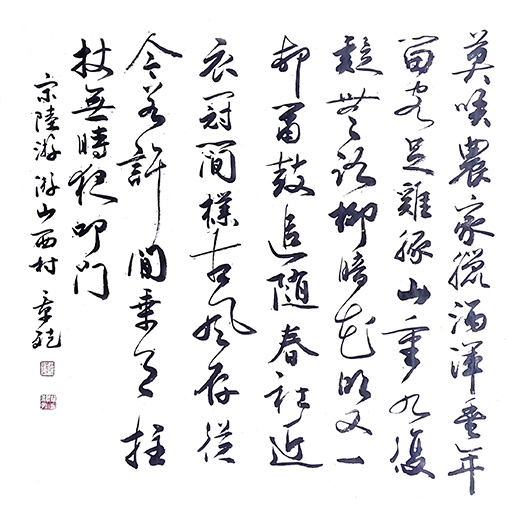 莫咲農家臘酒渾豐年
留客足雞豚山重水復
疑無路柳暗花明又一
邨簫鼓追隨春社近
衣冠簡樸古風存從
今若許閒乘月拄
杖無時夜叩門
宋陸游游山西村